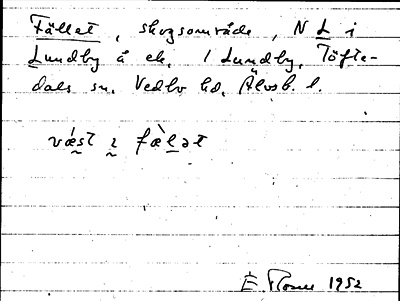 Fället, skogsområde, N L i
Lundby å ek. 1 Lundby, Töfte-
dals sn. Vedbo hd. Älvsb. l.
væ̀st ɪ fæ̀lət
E. 1952